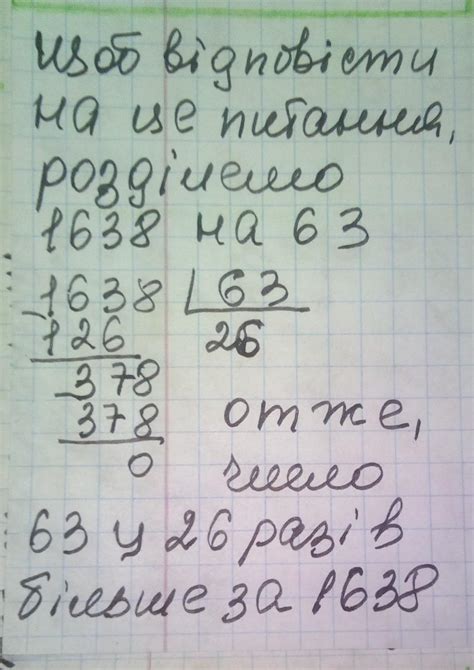 Щоб відповісти
на це питання,
розділемо
1638 на 63
-1638 63
126 26
-378
378
0
отже,
число
63 у 26 разів
більше за 1638